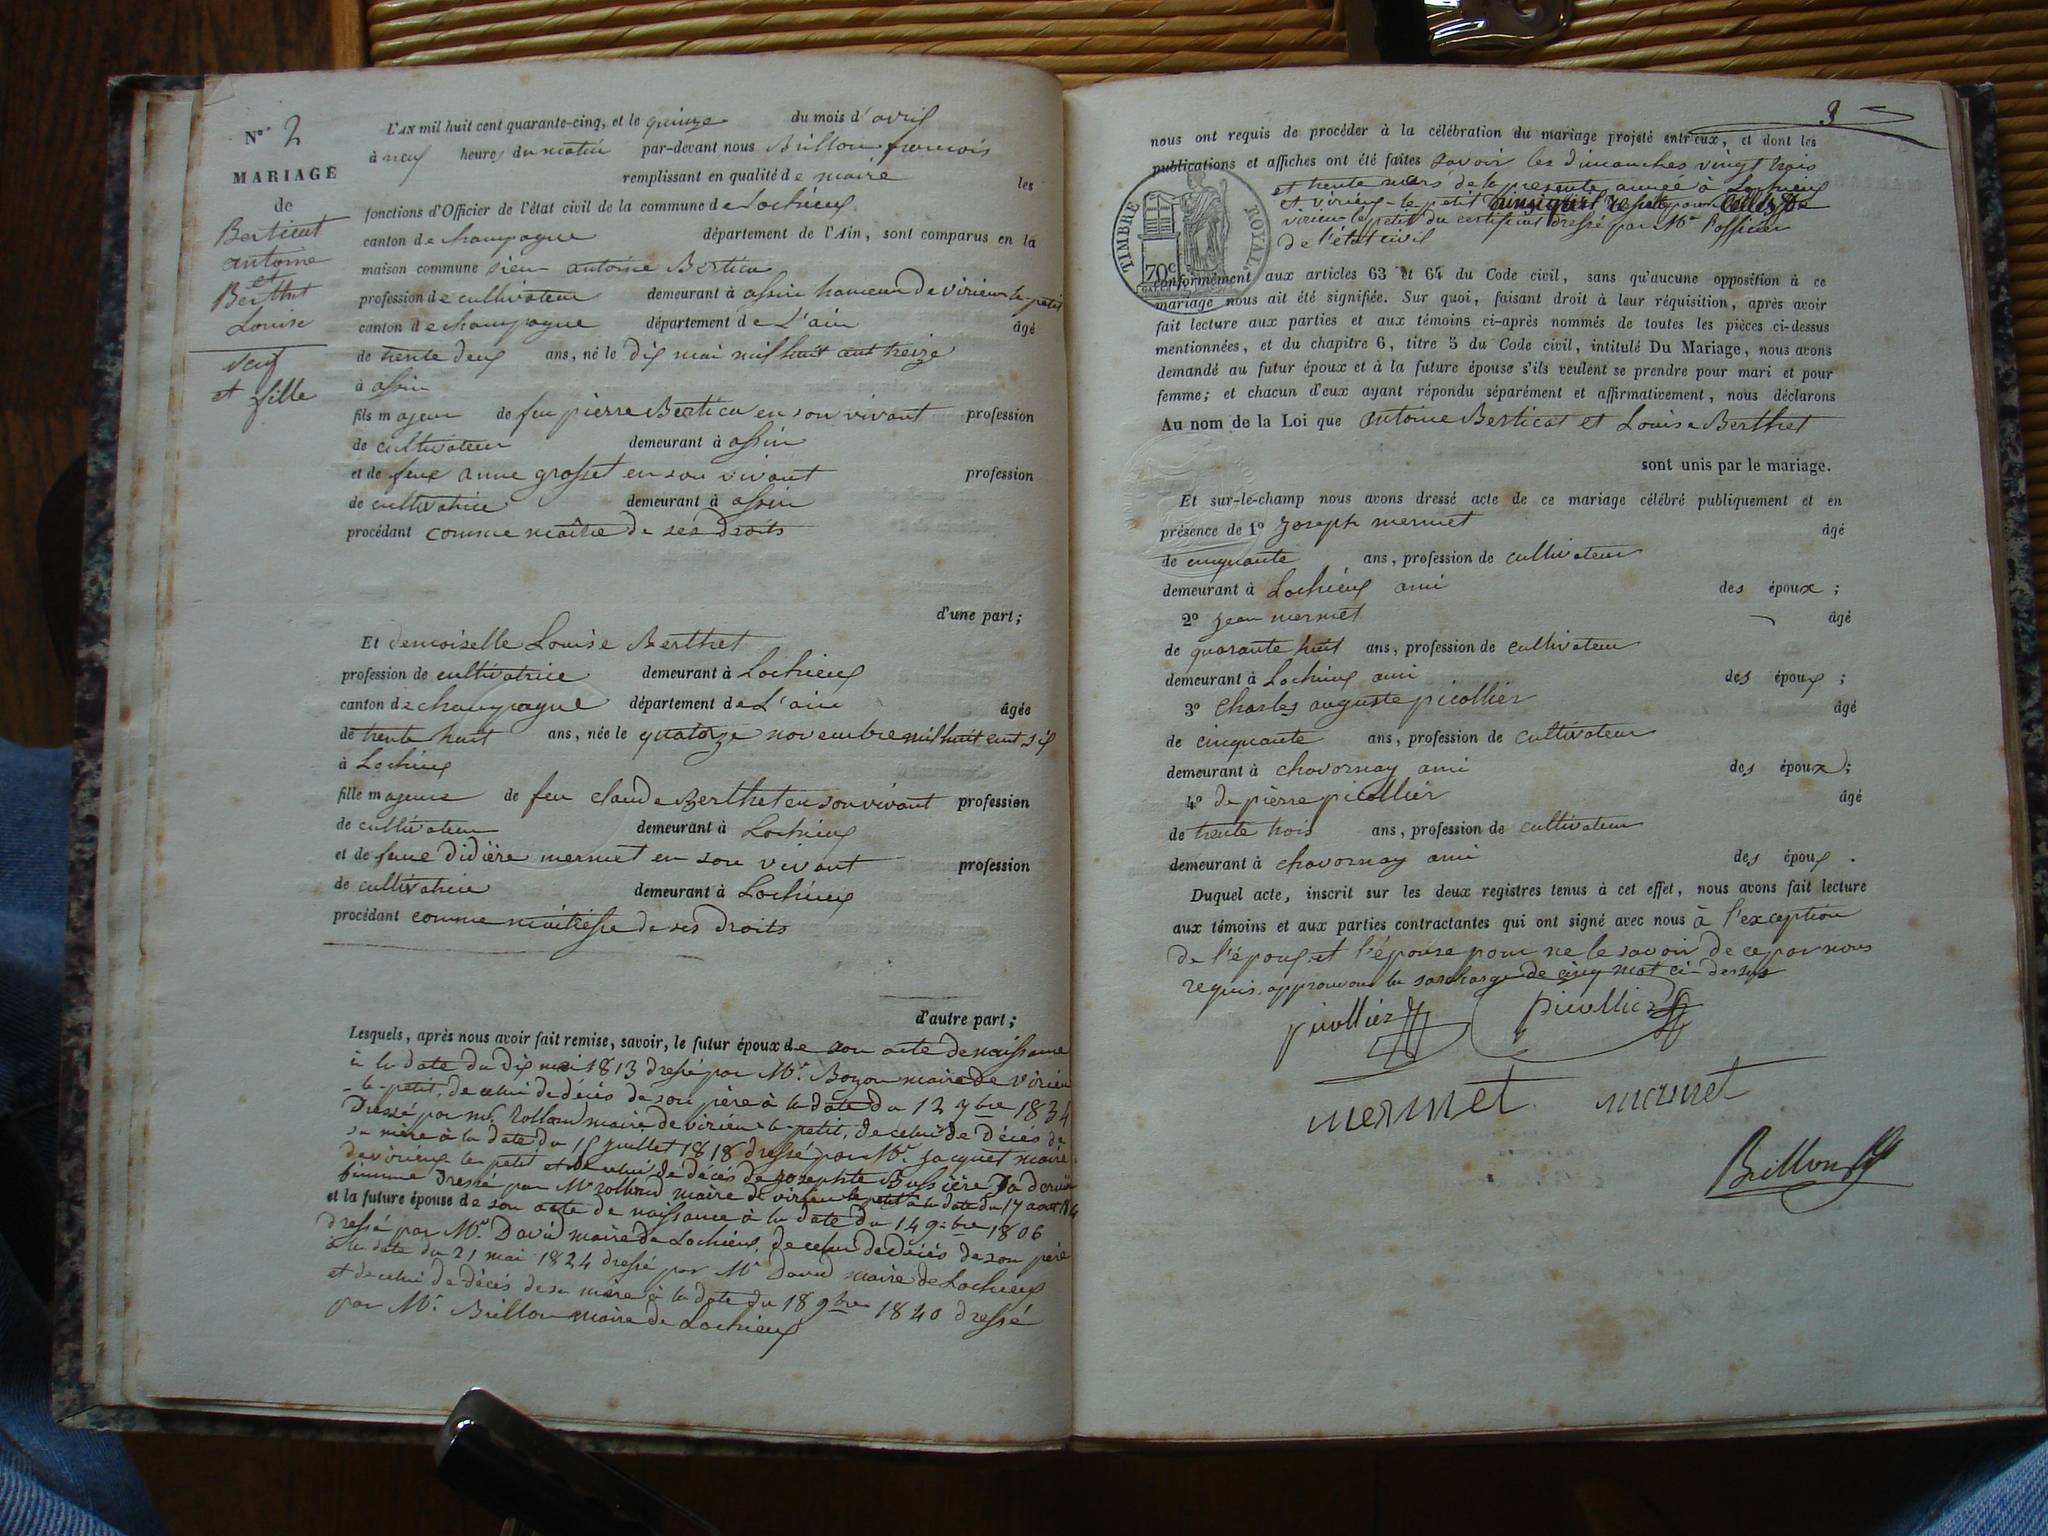 N° 2
MARIAGE
de
Berticat
antoine
et
Berthet
Louise
veuf
et fille
L'AN mil huit cent quarante-cinq, et le quinze du mois d'avril
à neuf heures du matin par-devant nous Brillon françois
remplissant en qualité de maire les
fonctions d'Officier de l'état civil de la commune de Lochieux
canton de champagne département de l'Ain, sont comparus en la
maison commune sieur antoine Berticat
profession de cultivateur demeurant à assin hameau de virieux le-petit
canton de champagne département de L'ain âgé
de trente deux ans, né le dix mai mil huit cent treize
à assin
fils majeur de feu pierre Berticat en son vivant profession
de cultivateur demeurant à assin
et de feue anne grosset en son vivant profession
de cultivatrice demeurant à assin
procédant comme maître de ses droits
d'une part;
Et demoiselle Louise Berthet
profession de cultivatrice demeurant à Lochieux
canton de champagne département de L'ain âgée
de trente huit ans, née le quatorze novembre mil huit cent six
à Lochieux
fille majeure de feu claude Berthet en son vivant profession
de cultivateur demeurant à Lochieux
et de feue didière mermet en son vivant profession
de cultivatrice demeurant à Lochieux
procédant comme maîtresse de ses droits
d'autre part;
Lesquels, après nous avoir fait remise, savoir, le futur époux de son acte de naissance
à la date du dix mai 1813 dressé par Mr. Bozon maire de virieu
-le-petit, de celui de décès de son père à la date du 12 7bre 1834
Dressé par mr. Rolland maire de virieu le-petit, de celui de Décès de
sa mère à la date du 15 juillet 1818 dressé par Mr. Jacquet maire
de virieux le petit et de celui de décès de josephte Bussière sa dernière
femme Dressé par Mr rolland maire de virieu le petit à la date du 17 aout
et la future épouse de son acte de naissance à la date du 14 9bre 1806
dressé par Mr. David maire de Lochieux, de celui de Décès de son père
à la date du 21 mai 1824 dressé par Mr David maire de Lochieux
et de celui de décès de sa mère à la date du 18 9bre 1840 dressé
par Mr. Brillon maire de Lochieux
3
nous ont requis de procéder à la célébration du mariage projeté entr'eux, et dont les
publications et affiches ont été faites savoir les dimanches vingt trois
et trente mars de la presente année à Lochieux
et virieux-le petit ainsi qu'il
virieu le petit du certificat dressé par Mr l'officier
de l'état civil
TIMBRE ROYAL
70c
conformément aux articles 63 et 64 du Code civil, sans qu'aucune opposition à ce
mariage nous ait été signifiée. Sur quoi, faisant droit à leur réquisition, après avoir
fait lecture aux parties et aux témoins ci-après nommés de toutes les pièces ci-dessus
mentionnées, et du chapitre 6, titre 5 du Code civil, intitulé Du Mariage, nous avons
demandé au futur époux et à la future épouse s'ils veulent se prendre pour mari et pour
femme; et chacun d'eux ayant répondu séparément et affirmativement, nous déclarons
Au nom de la Loi que antoine Berticat et Louise Berthet
sont unis par le mariage.
Et sur-le-champ nous avons dressé acte de ce mariage célébré publiquement et en
présence de 1° joseph mermet âgé
de cinquante ans, profession de cultivateur
demeurant à Lochieux ami des époux;
2° jean mermet âgé
de quarante huit ans, profession de cultivateur
demeurant à Lochieux ami des époux;
3° charles auguste picollier âgé
de cinquante ans, profession de cultivateur
demeurant à chavornay ami des époux;
4° de pièrre picollier âgé
de trente trois ans, profession de cultivateur
demeurant à chavornay ami des époux.
Duquel acte, inscrit sur les deux registres tenus à cet effet, nous avons fait lecture
aux témoins et aux parties contractantes qui ont signé avec nous à l'exception
de l'époux et l'épouse pour ne le savoir de ce par nous
requis. approuvons la surcharge de cinq mot ci-dessus
picollier picollier
mermet mermet
Brillon